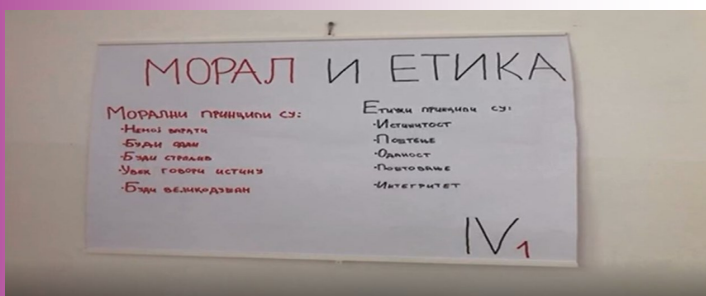 МОРАЛ И ЕТИКА
МОРАЛНИ ПРИНЦИПИ СУ:
-НЕМОЈ ВАРАТИ
-БУДИ ОДАН
-БУДИ СТРПЉИВ
-УВЕК ГОВОРИ ИСТИНУ
-БУДИ ВЕЛИКОДУШАН
ЕТИЧКИ ПРИНЦИПИ СУ:
-ИСТИНИТОСТ
-ПОШТЕЊЕ
-ОДАНОСТ
-ПОШТОВАЊЕ
-ИНТЕГРИТЕТ
IV1